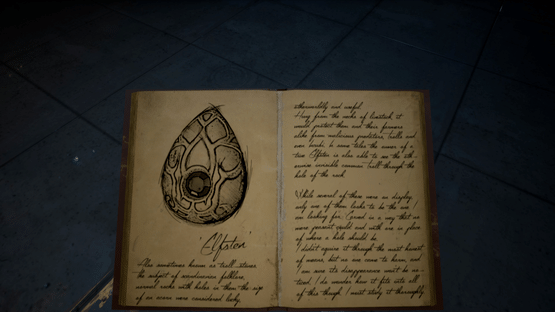 Elfsten
Also sometimes known as troll-stones
the subject of scandinavian folklore,
normal rocks with holes in them the size
of an acorn were considered lucky,
otherworldly and useful.
Hung from the necks of livestock it
would protect them and their farmers
alike from malicious predators, trolls and
even brides. In some tales the owner of a
true Elfsten is also able to see the oth-
erwise invisible common troll through the
hole of the rock.
While several of these were on display,
only one of them looks to be the one I
am looking for. Carved in a way that no
mere peasant would and with an in place
of where a hole should be.
I didn't acquire it through the most honest
of means, but no one came to harm, and
I am sure its disappearance must be no-
ticed. I do wonder how it fits into all
of this though. I must study it thoroughly.